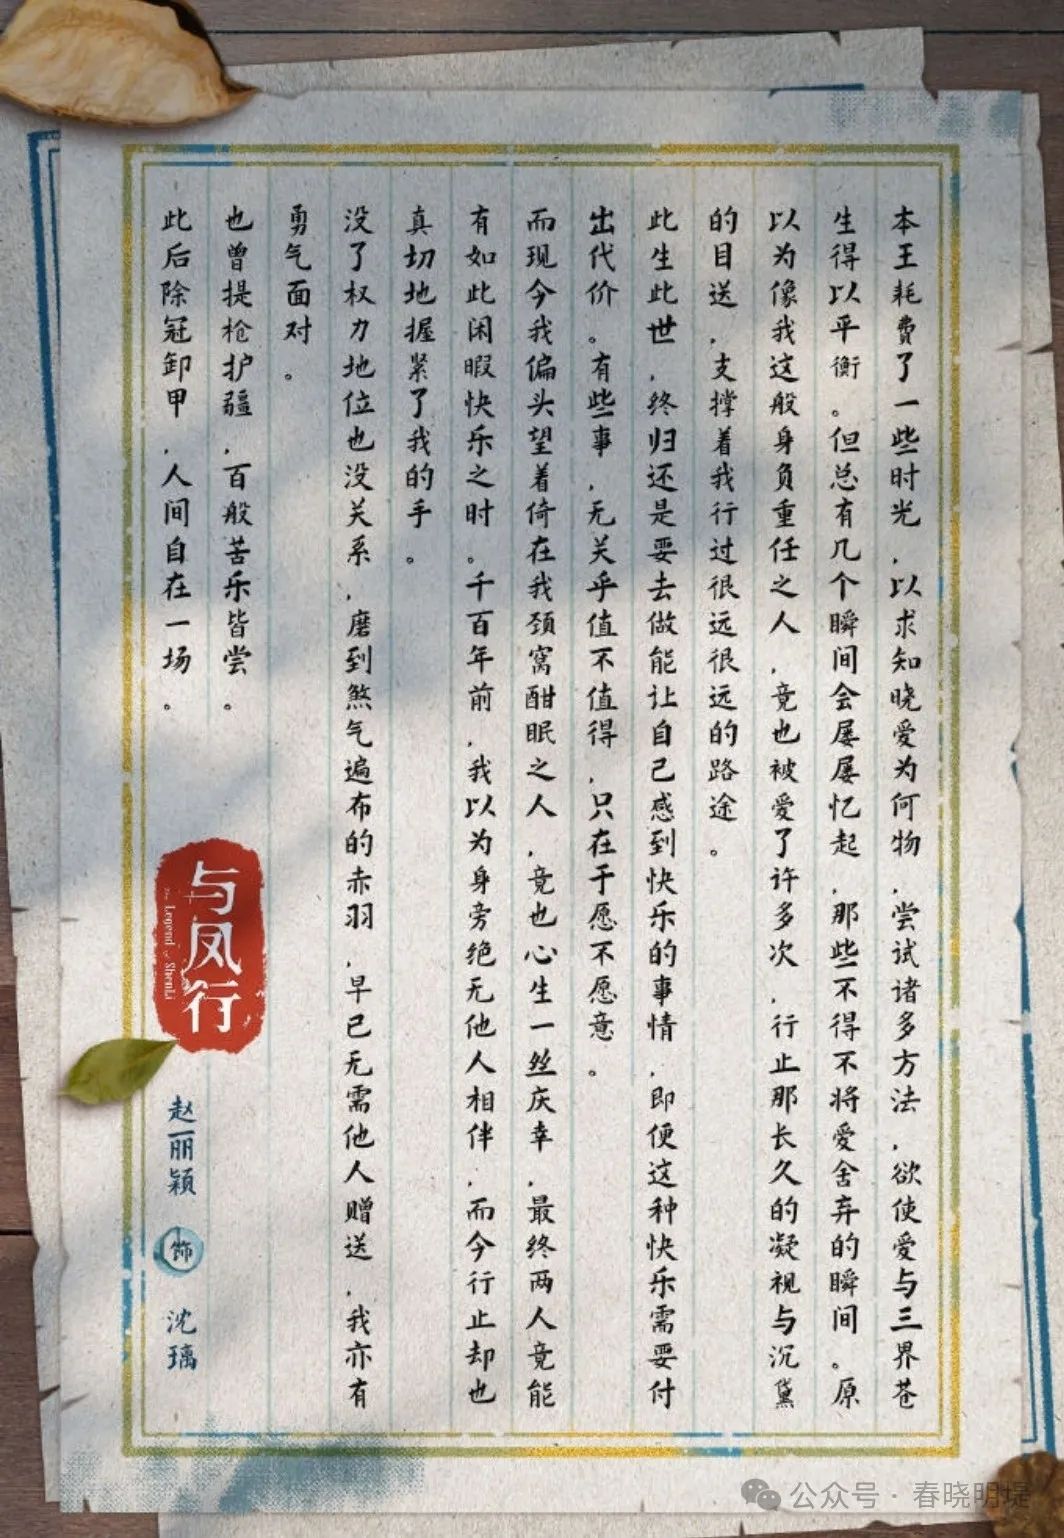 本王耗费了一些时光，以求知晓爱为何物，尝试诸多方法，欲使爱与三界苍
生得以平衡。但总有几个瞬间会屡屡忆起，那些不得不将爱舍弃的瞬间。原
以为像我这般身负重任之人，竟也被爱了许多次，行止那长久的凝视与沉黛
的目送，支撑着我行过很远很远的路途。
此生此世，终归还是要去做能让自己感到快乐的事情，即便这种快乐需要付
出代价。有些事，无关乎值不值得，只在于愿不愿意。
而现今我偏头望着倚在我颈窝酣眠之人，竟也心生一丝庆幸，最终两人竟能
有如此闲暇快乐之时。千百年前，我以为身旁绝无他人相伴，而今行止却也
真切地握紧了我的手。
没了权力地位也没关系，磨到煞气遍布的赤羽，早已无需他人赠送，我亦有
勇气面对。
也曾提枪护疆，百般苦乐皆尝。
此后除冠卸甲，人间自在一场。
与凤行
The Legend of ShenLi
赵丽颖 饰 沈璃
公众号·春晓明堤